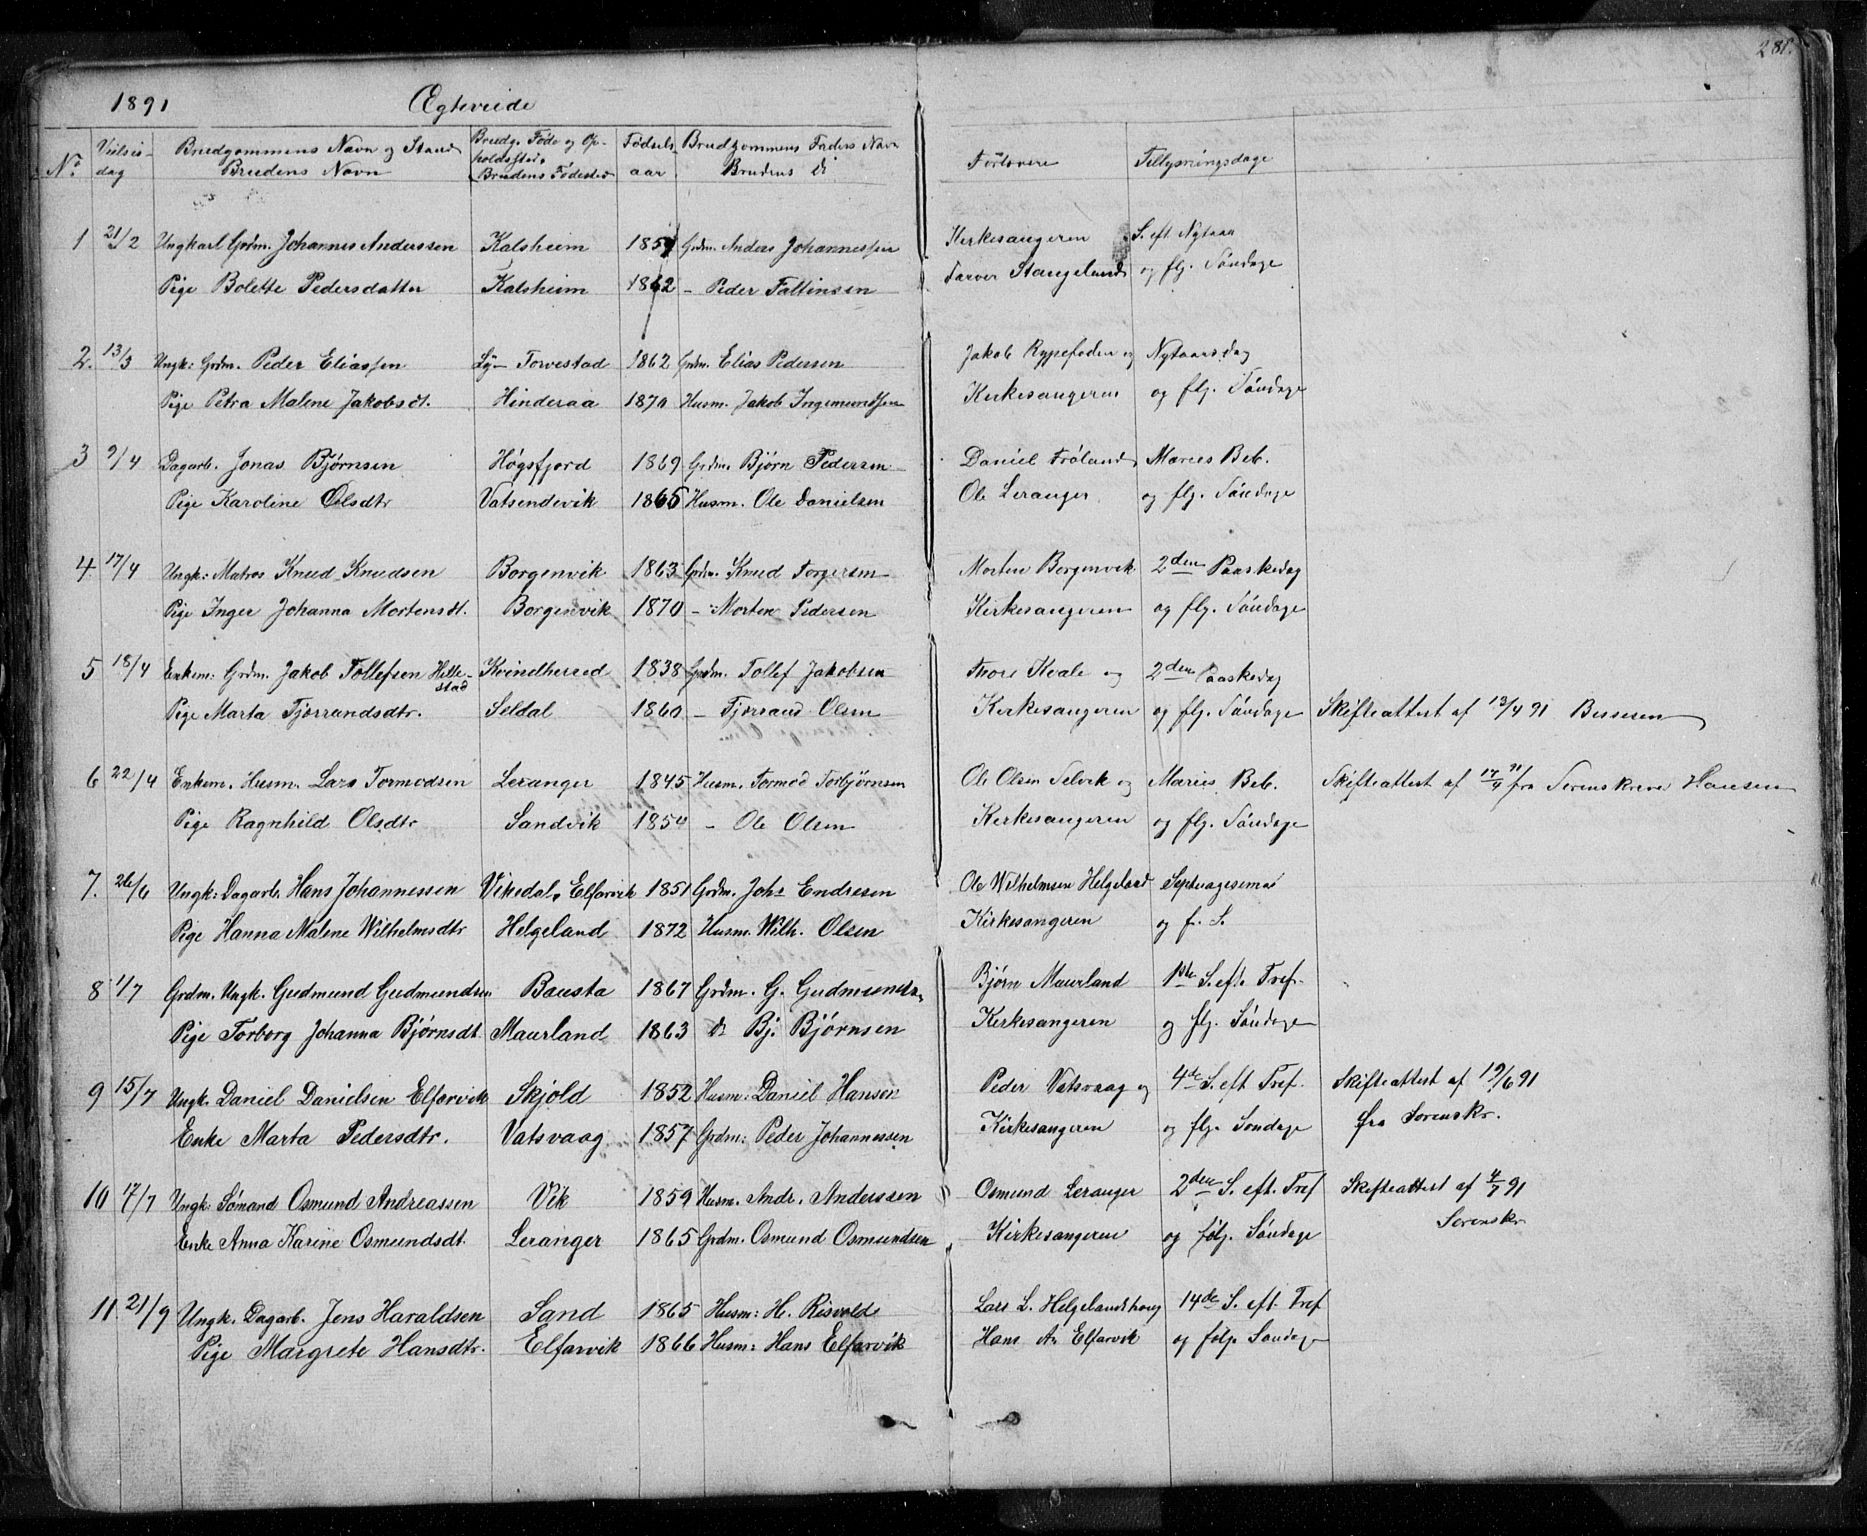 281.
1891 Ægteviede
No Vielsesdag Brudgommens Navn og Stand Brudens Navn Brudg. Føde og Opholdssted, Brudens Fødested Fødselsaar Brudgommens Faders Navn Brudens Do Forlovere Tillysningsdage
1 21/2 Ungkarl Grdm. Johannes Anderssen Kalsheim 1859 Grdm. Anders Johannessen Kirkesangeren S. eft Nytaar
Pige Bolette Pedersdatter Kalsheim 1862 - Peder Fattinsen Farver Stangeland og flg. Søndage
2. 13/3 Ungk: Grdm. Peder Eliassen Torvestad 1862 Grdm. Elias Pedersen Jakob Rypefoden og Nytaarsdag
Pige Petra Malene Jakobsdt. Hinderaa 1870 Husm. Jakob Ingemundsen Kirkesangeren og flg. Søndage
3 9/4 Dagarb. Jonas Bjørnsen Høgsfjord 1869 Grdm. Bjørn Pedersen Daniel Frøland Maries Beb.
Pige Karoline Olsdtr Vatsendevik 1865 Husm. Ole Danielsen Ole Leranger og flg. Søndage
4. 17/4 Ungk: Matros Knud Knudsen Borgenvik 1863 Grdm. Knud Torgersen Morten Borgenvik 2den Paaskedag
Pige Inger Johanna Mortensdt. Borgenvik 1870 - Morten Pedersen Kirkesangeren og flg. Søndage
5 18/4 Enkem: Grdm. Jakob Tollefsen Hillestad Kvindherred 1838 Grdm. Tollef Jakobsen Thore Kvale og 2den Paaskedag
Pige Marta Tjørrandsdtr. Seldal 1860 - Tjørrand Olsen Kirkesangeren og flg. Søndage Skifteattest af 13/4 91 Bessesen
6 22/4 Enkem. Husm. Lars Tormodsen Leranger 1845 Husm. Tormod Torbjørnsen Ole Olsen Selvik og Maries Beb. Skifteattest af 17/4 91 fra Sorenskriver Hansen
Pige Ragnhild Olsdtr Sandvik 1854 - Ole Olsen Kirkesangeren og flg. Søndage
7. 26/6 Ungk: Dagarb. Hans Johannessen Vikedal, Elfarvik 1851 Grdm. Johs Endresen Ole Wilhelmsen Helgeland Septuagesima
Pige Hanna Malene Wilhelmsdtr Helgeland 1872 Husm. Wilh. Olsen Kirkesangeren og f. S.
8 1/7 Grdm. Ungk. Gudmund Gudmundsen Bausta 1867 Grdm. G. Gudmundsen Bjørn Maurland 1ste S. eft. Tref.
Pige Torborg Johanna Bjørnsdt. Maurland 1863 do Bj. Bjørnsen Kirkesangeren og flg. Søndage
9 15/7 Ungk. Daniel Danielsen Elfarvik Skjold 1852 Husm: Daniel Hansen Peder Vatsvaag og 4de S. eft Tref. Skifteattest af 19/6 91
Enke Marta Pedersdtr. Vatsvaag 1857 Grdm: Peder Johannessen Kirkesangeren og flg. Søndage fra Sorenskr.
10 17/7 Ungk: Sømand Osmund Andreassen Vik 1859 Husm. Andr. Anderssen Osmund Leranger 2den S. eft. Tref Skifteattest af 4/7 91
Enke Anna Karine Osmundsdt. Leranger 1865 Grdm. Osmund Osmundsen Kirkesangeren og følg. Søndage Sorenskr
11. 21/9 Ungk. Dagarb. Jens Haraldsen Sand 1865 Husm: H. Risvold Lars L. Helgelandshaug 14de S. eft. Tref
Pige Margrete Hansdtr. Elfarvik 1866 Husm: Hans Elfarvik Hans A. Elfarvik og følg. Søndage